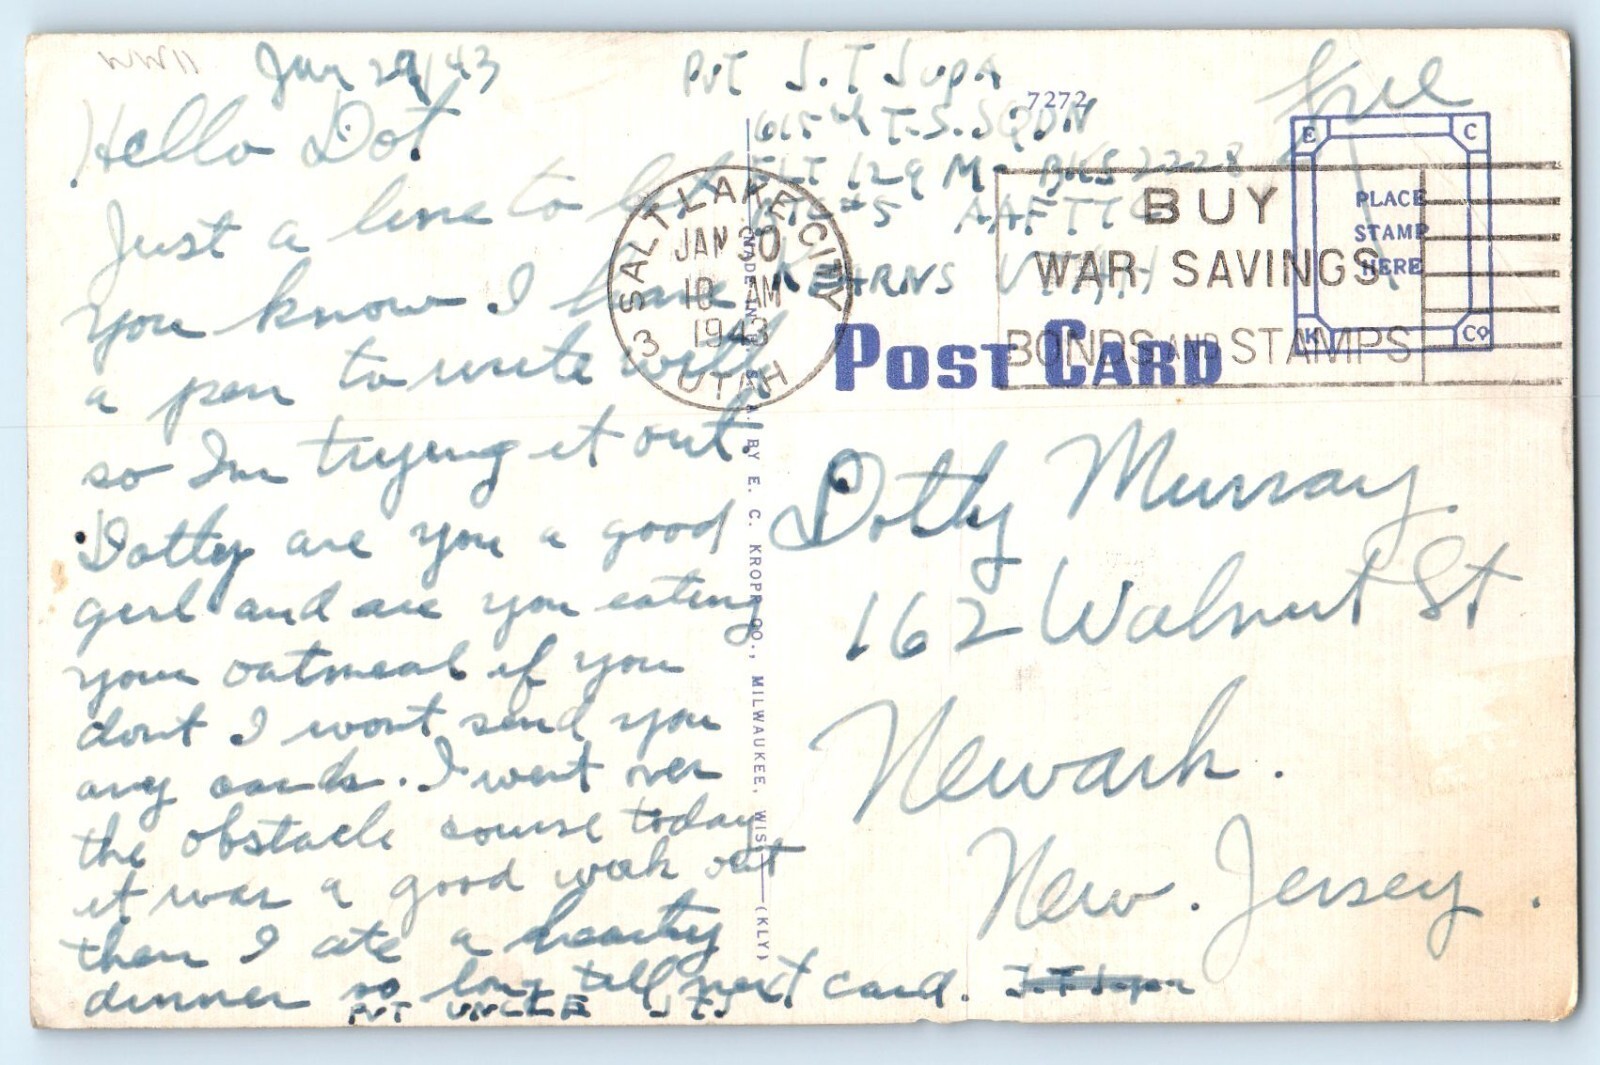 WWII
Jan 29/43
Hello Dot
Just a line to let
you know I have
a pen to write with
so Im trying it out.
Dotty are you a good
girl and are you eating
your oatmeal if you
dont I wont send you
any cards. I went over
the obstacle course today
it was a good work out
then I ate a hearty
dinner so long till next card. J.T. Jupa
PVT UNCLE JTJ
Pvt J. T Jupa
615th T.S. SQDN
FLT 129 M- BKS 2228
AAFTTC
KEARNS UTAH
Free
7272
SALT LAKE CITY
JAN 30
10 AM
1943
3 UTAH
BUY
WAR SAVINGS
BONDS AND STAMPS
E C
PLACE
STAMP
HERE
K Co
POST CARD
MADE IN U. S. A. BY E. C. KROPP CO., MILWAUKEE, WIS. (KLY)
Dotty Murray
162 Walnut St
Newark.
New. Jersey.